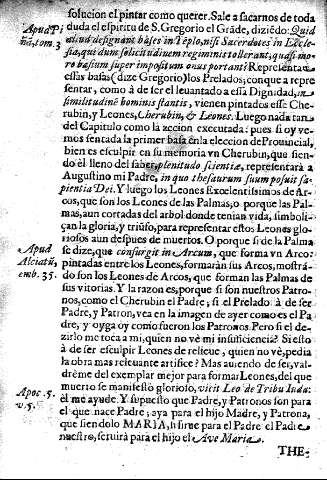 solucion el pintar como querer. Sale a sacarnos de toda
duda el espiritu de S. Gregorio el Grāde, diziēdo: Quid
aliud designant bases in Tēplo, nisi Sacerdotes in Eccle-
sia, qui dum solicitudinem regiminis tollerant, quasi mo-
re basium super impositum onus portant? Representā
essas basas (dize Gregorio) los Prelados; con que a repre-
sentar, como à de ser el leuantado a essa Dignidad, in
similitudinē hominis stantis, vienen pintados esse Che-
rubin, y Leones, Cherubin, & Leones. Luego nada tan
del Capitulo como la accion executada: pues si oy ve-
mos sentada la primer basa en la eleccion de Prouincial,
bien es esculpir en su memoria vn Cherubin, que sien-
do el lleno del saber, plenitudo scientiæ, representarà a
Augustino mi Padre, in quo thesaurum suum posuit sa-
pientia Dei. Y luego los Leones Excelentissimos de Ar-
cos, que son los Leones de las Palmas, o porque las Pal-
mas, aun cortadas del arbol donde tenian vida, simboli-
çan la gloria, y triūfo, para representar estos Leones glo-
riosos aun despues de muertos. O porque si de la Palma
se dize, que consurgit in Arcum, que forma vn Arco:
pintadas entre los Leones, formaràn sus Arcos, mostrā-
do son los Leones de Arcos, que forman las Palmas de
sus vitorias. Y la razon es, porque si son nuestros Patro-
nos, como el Cherubin el Padre, si el Prelado à de ser
Padre, y Patron, vea en la imagen de ayer como es el Pa
dre, y oyga oy como fueron los Patronos. Pero si el de-
zirlo me toca a mi, quien no vè mi insuficiencia? Si esto
à de ser esculpir Leones de relieue, quien no vè, pedia
la obra mas releuante artifice? Mas auiendo de ser, val-
drème del exemplar mejor para formar Leones, del que
muerto se manifestò glorioso, vicit Leo de Tribu Iuda:
èl me ayude. Y supuesto que Padre, y Patronos son para
el que nace Padre; aya para el hijo Madre, y Patrona,
que siendolo MARIA, si sirue para el Padre el Padre
nuestro, seruirà para el hijo el Ave Maria.
THE-
Apud P;
tom. 3
Apud
Alciatū,
emb. 35.
Apoc. 5.
v. 5.